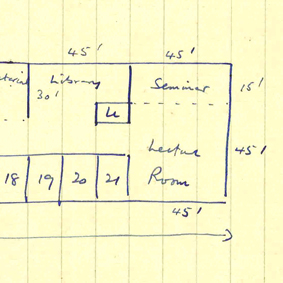 45' 45'
Library Seminar 15'
30'
Lecture 45'
18 19 20 21 Room
45'